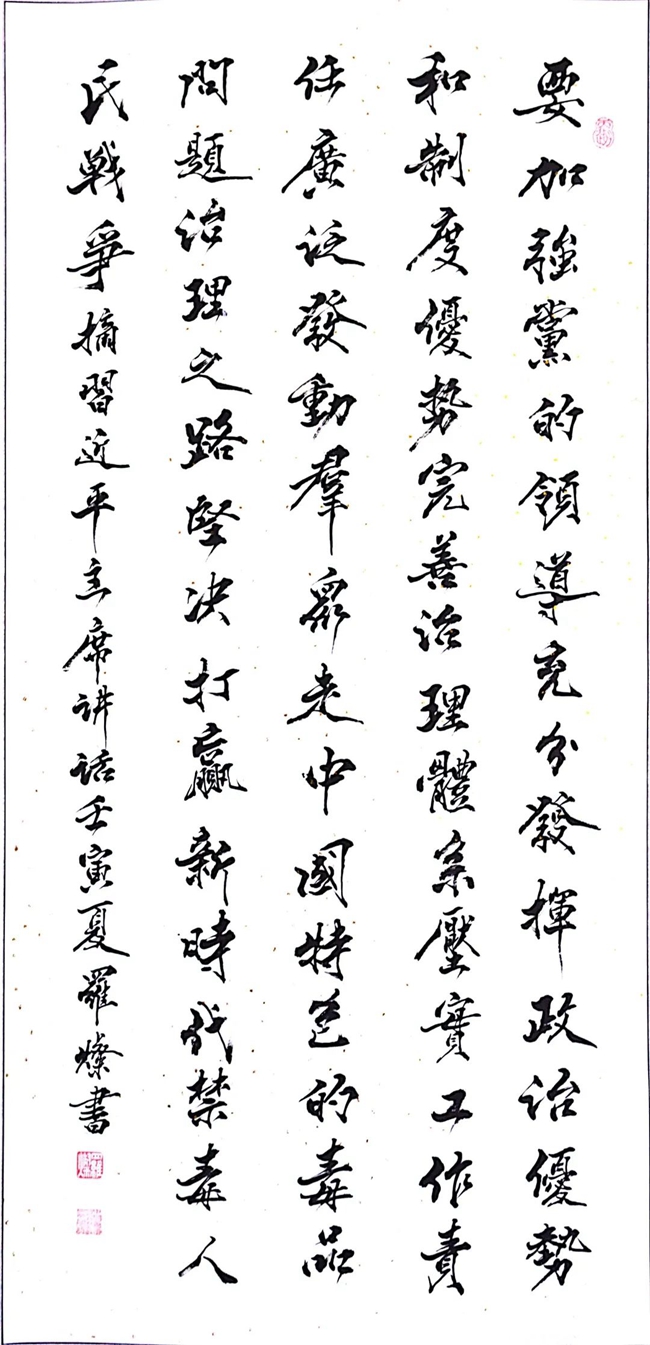 要加強黨的領導充分發揮政治優勢
和制度優勢完善治理體系壓實工作責
任廣泛發動羣眾走中國特色的毒品
問題治理之路堅决打贏新時代禁毒人
民戰爭摘習近平主席讲话壬寅夏羅燦書